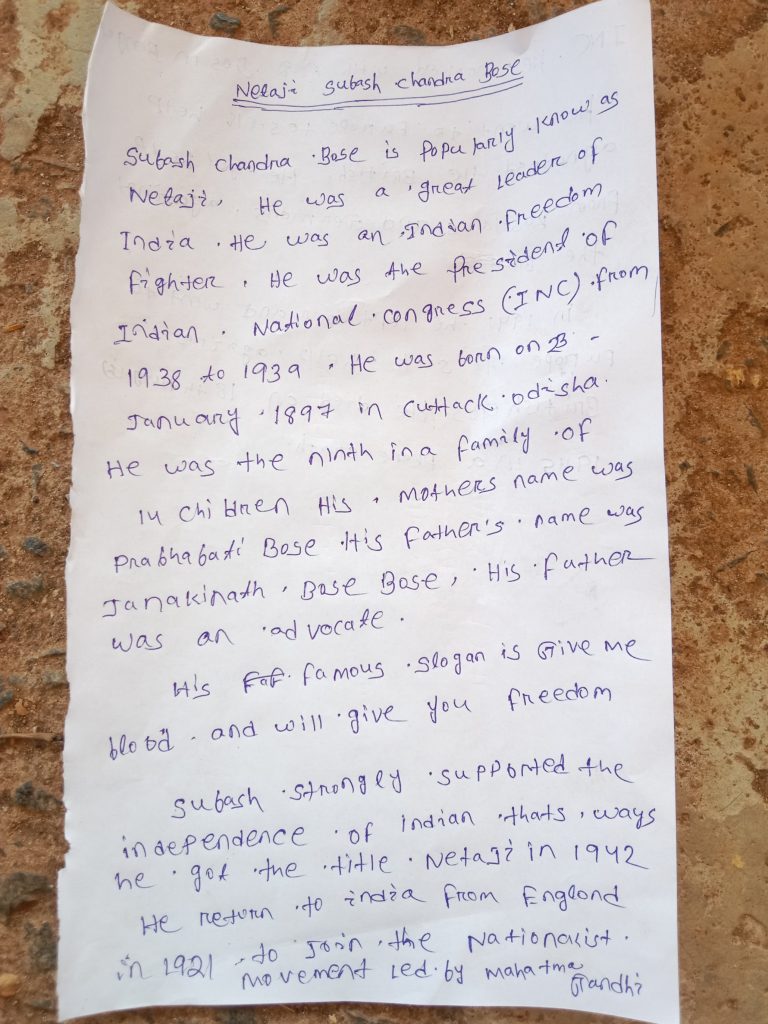 Netaji Subash Chandra Bose
Subash Chandra . Bose is Popularly . Know as
Netaji, He was a great Leader of
India . He was an Indian freedom
fighter . He was the President of
Indian . National . congress (INC) . from
1938 to 1939 . He was born on 23 -
January . 1897 in Cuttack . odisha.
He was the ninth in a family of
14 children His , mothers name was
Prabhabati Bose His father's . name was
Janakinath , Bose Bose , His father
was an advocate .
His famous . slogan is Give me
blood . and will give you freedom
Subash strongly supported the
independence of indian thats , ways
he got the title . Netaji in 1942
He return to india from England
in 1921 , to Join the Nationalist .
movement Led by Mahatma
Gandhi